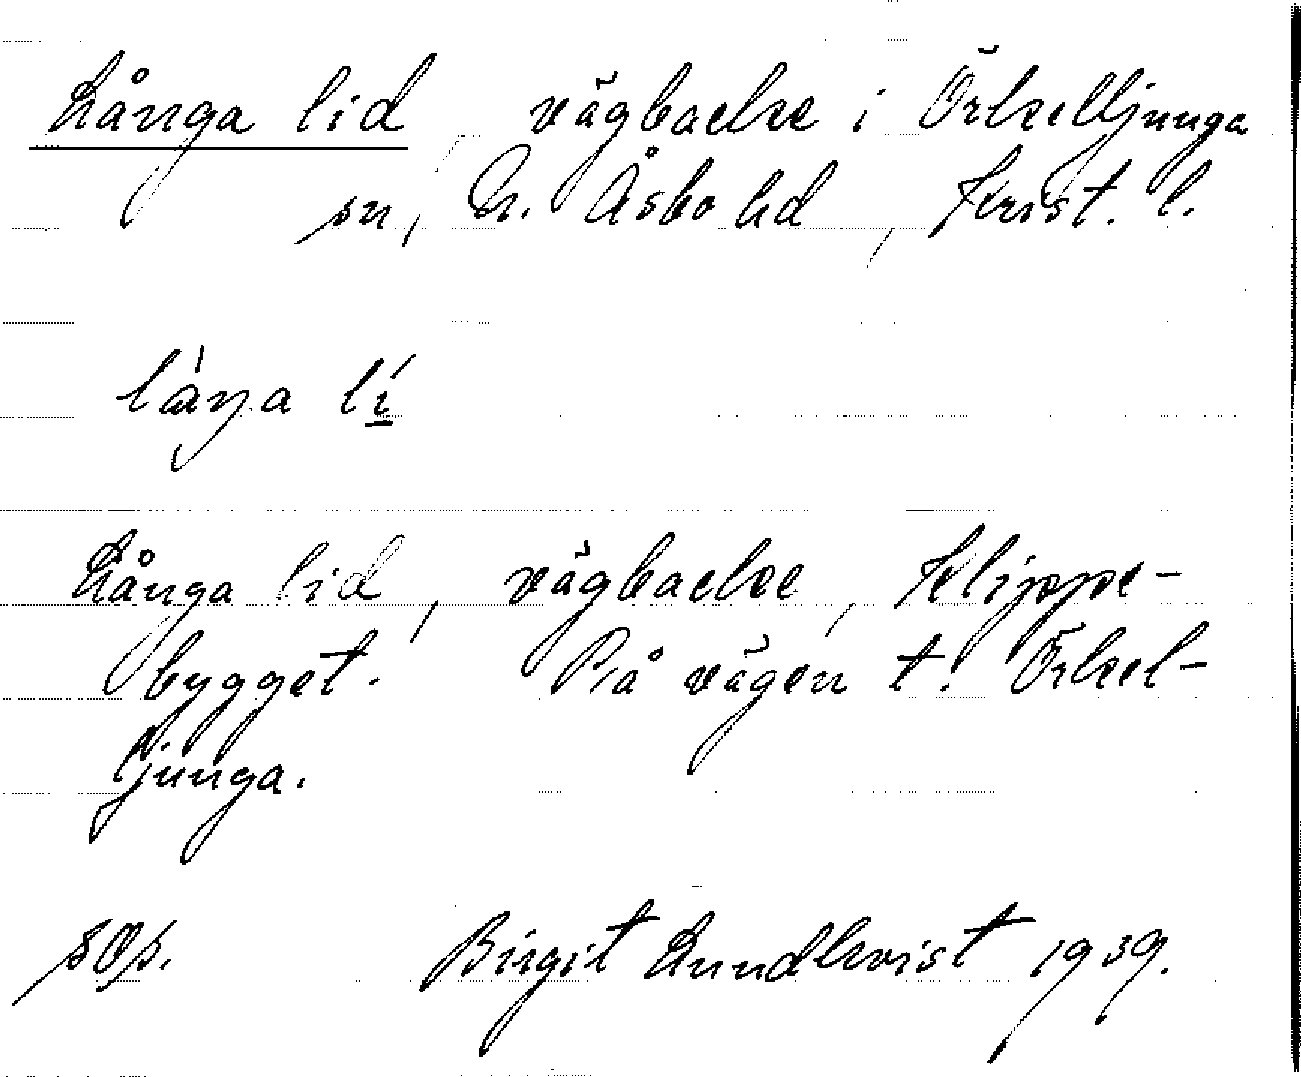 Långa lid, vägbacke i Örkelljunga
sn, N. Åsbo hd, Krist. l.
låŋa lí
Långa lid, vägbacke, Klippe-
bygget. På vägen t. Örkel-
ljunga.
Birgit Lundkvist 1939.